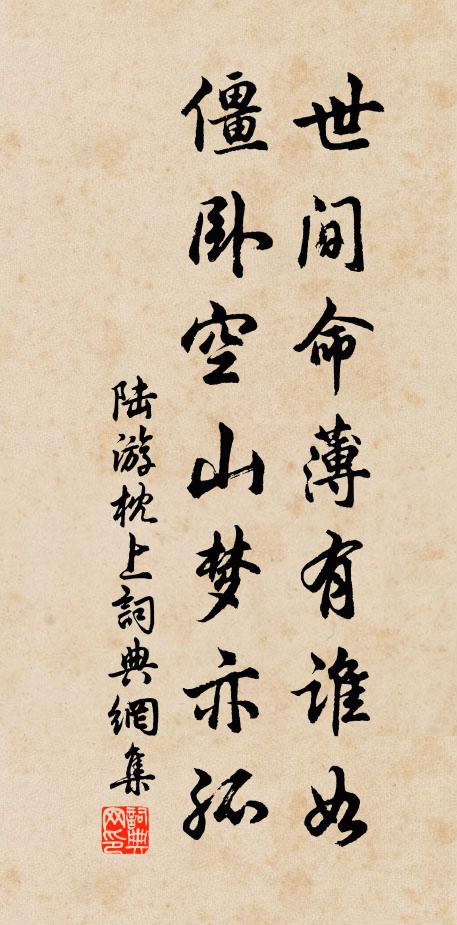 世间命薄有谁如
僵卧空山梦亦孤
陆游枕上詞典網集
詞典网印